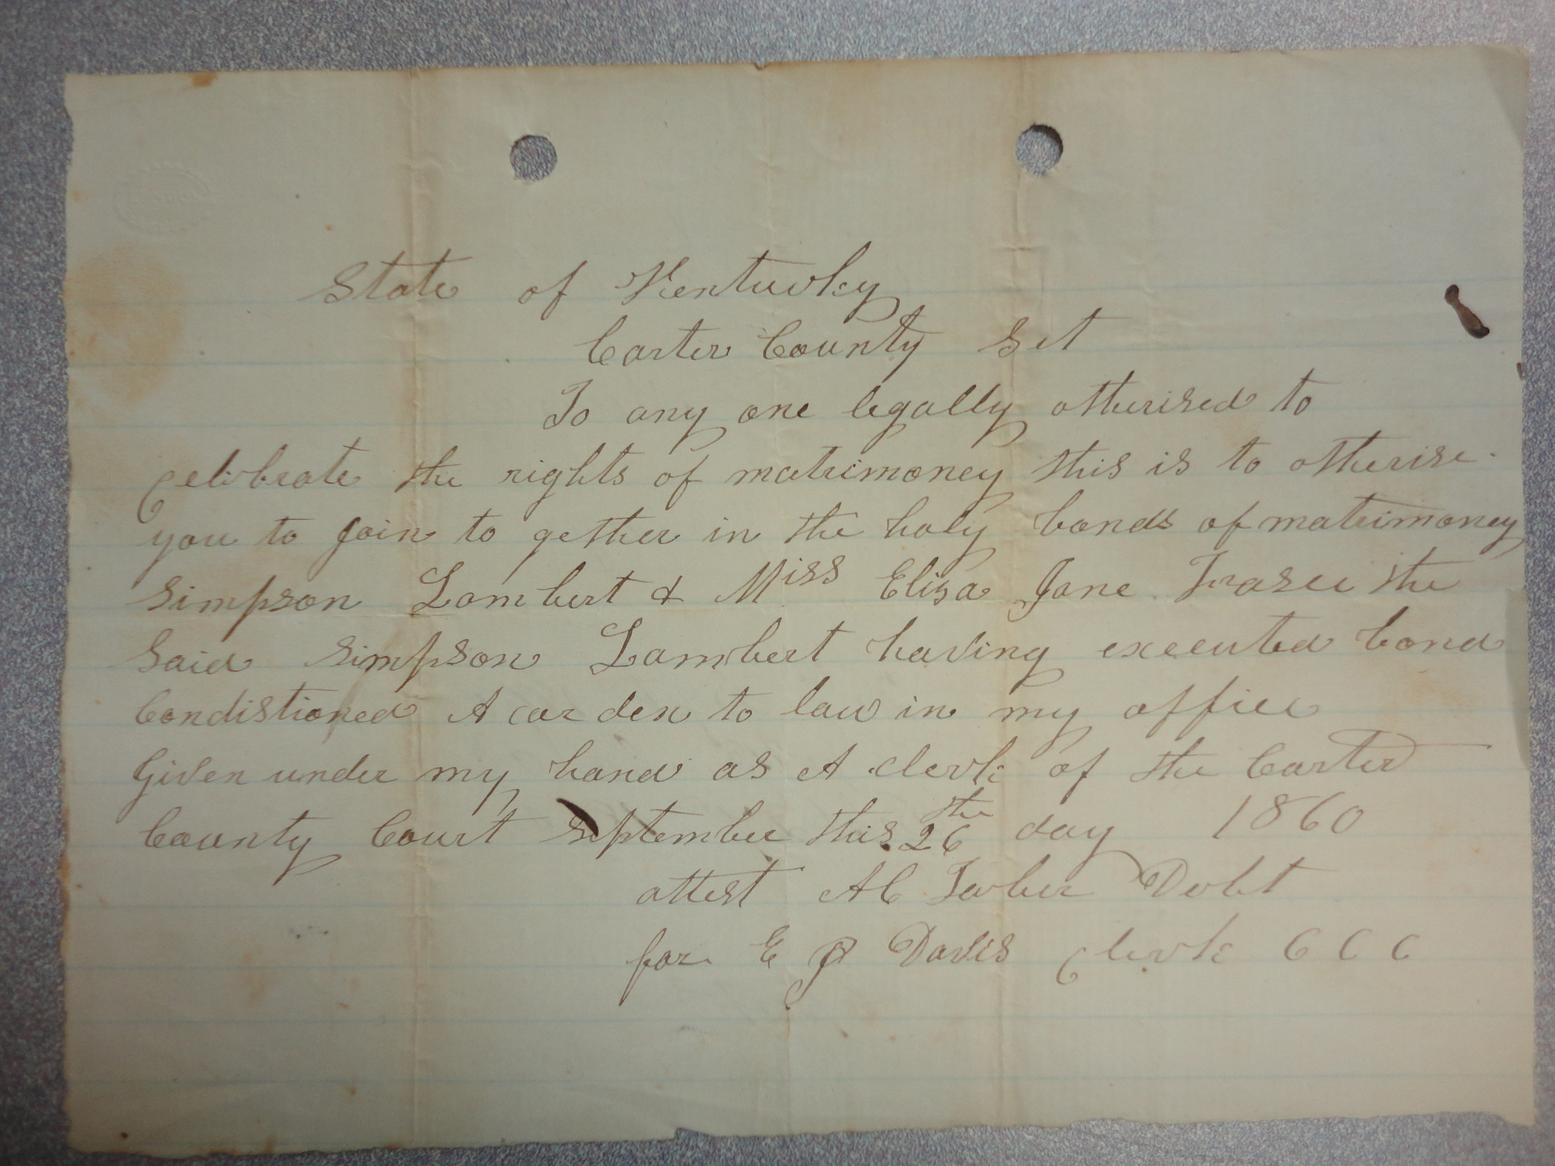 State of Kentucky
Carter County Sct
To any one legally otherised to
Celebrate the rights of matrimoney this is to otherise
you to join to gether in the holy bonds of matrimoney
Simpson Lambert & Miss Elisa Jane Fraser the
Said Simpson Lambert having executed bond
Condistioned A car den to law in my office
Given under my hand as A clerk of the Carter
County Court September this 26 the day 1860
attest A C
for E J Davis Clerk C C C